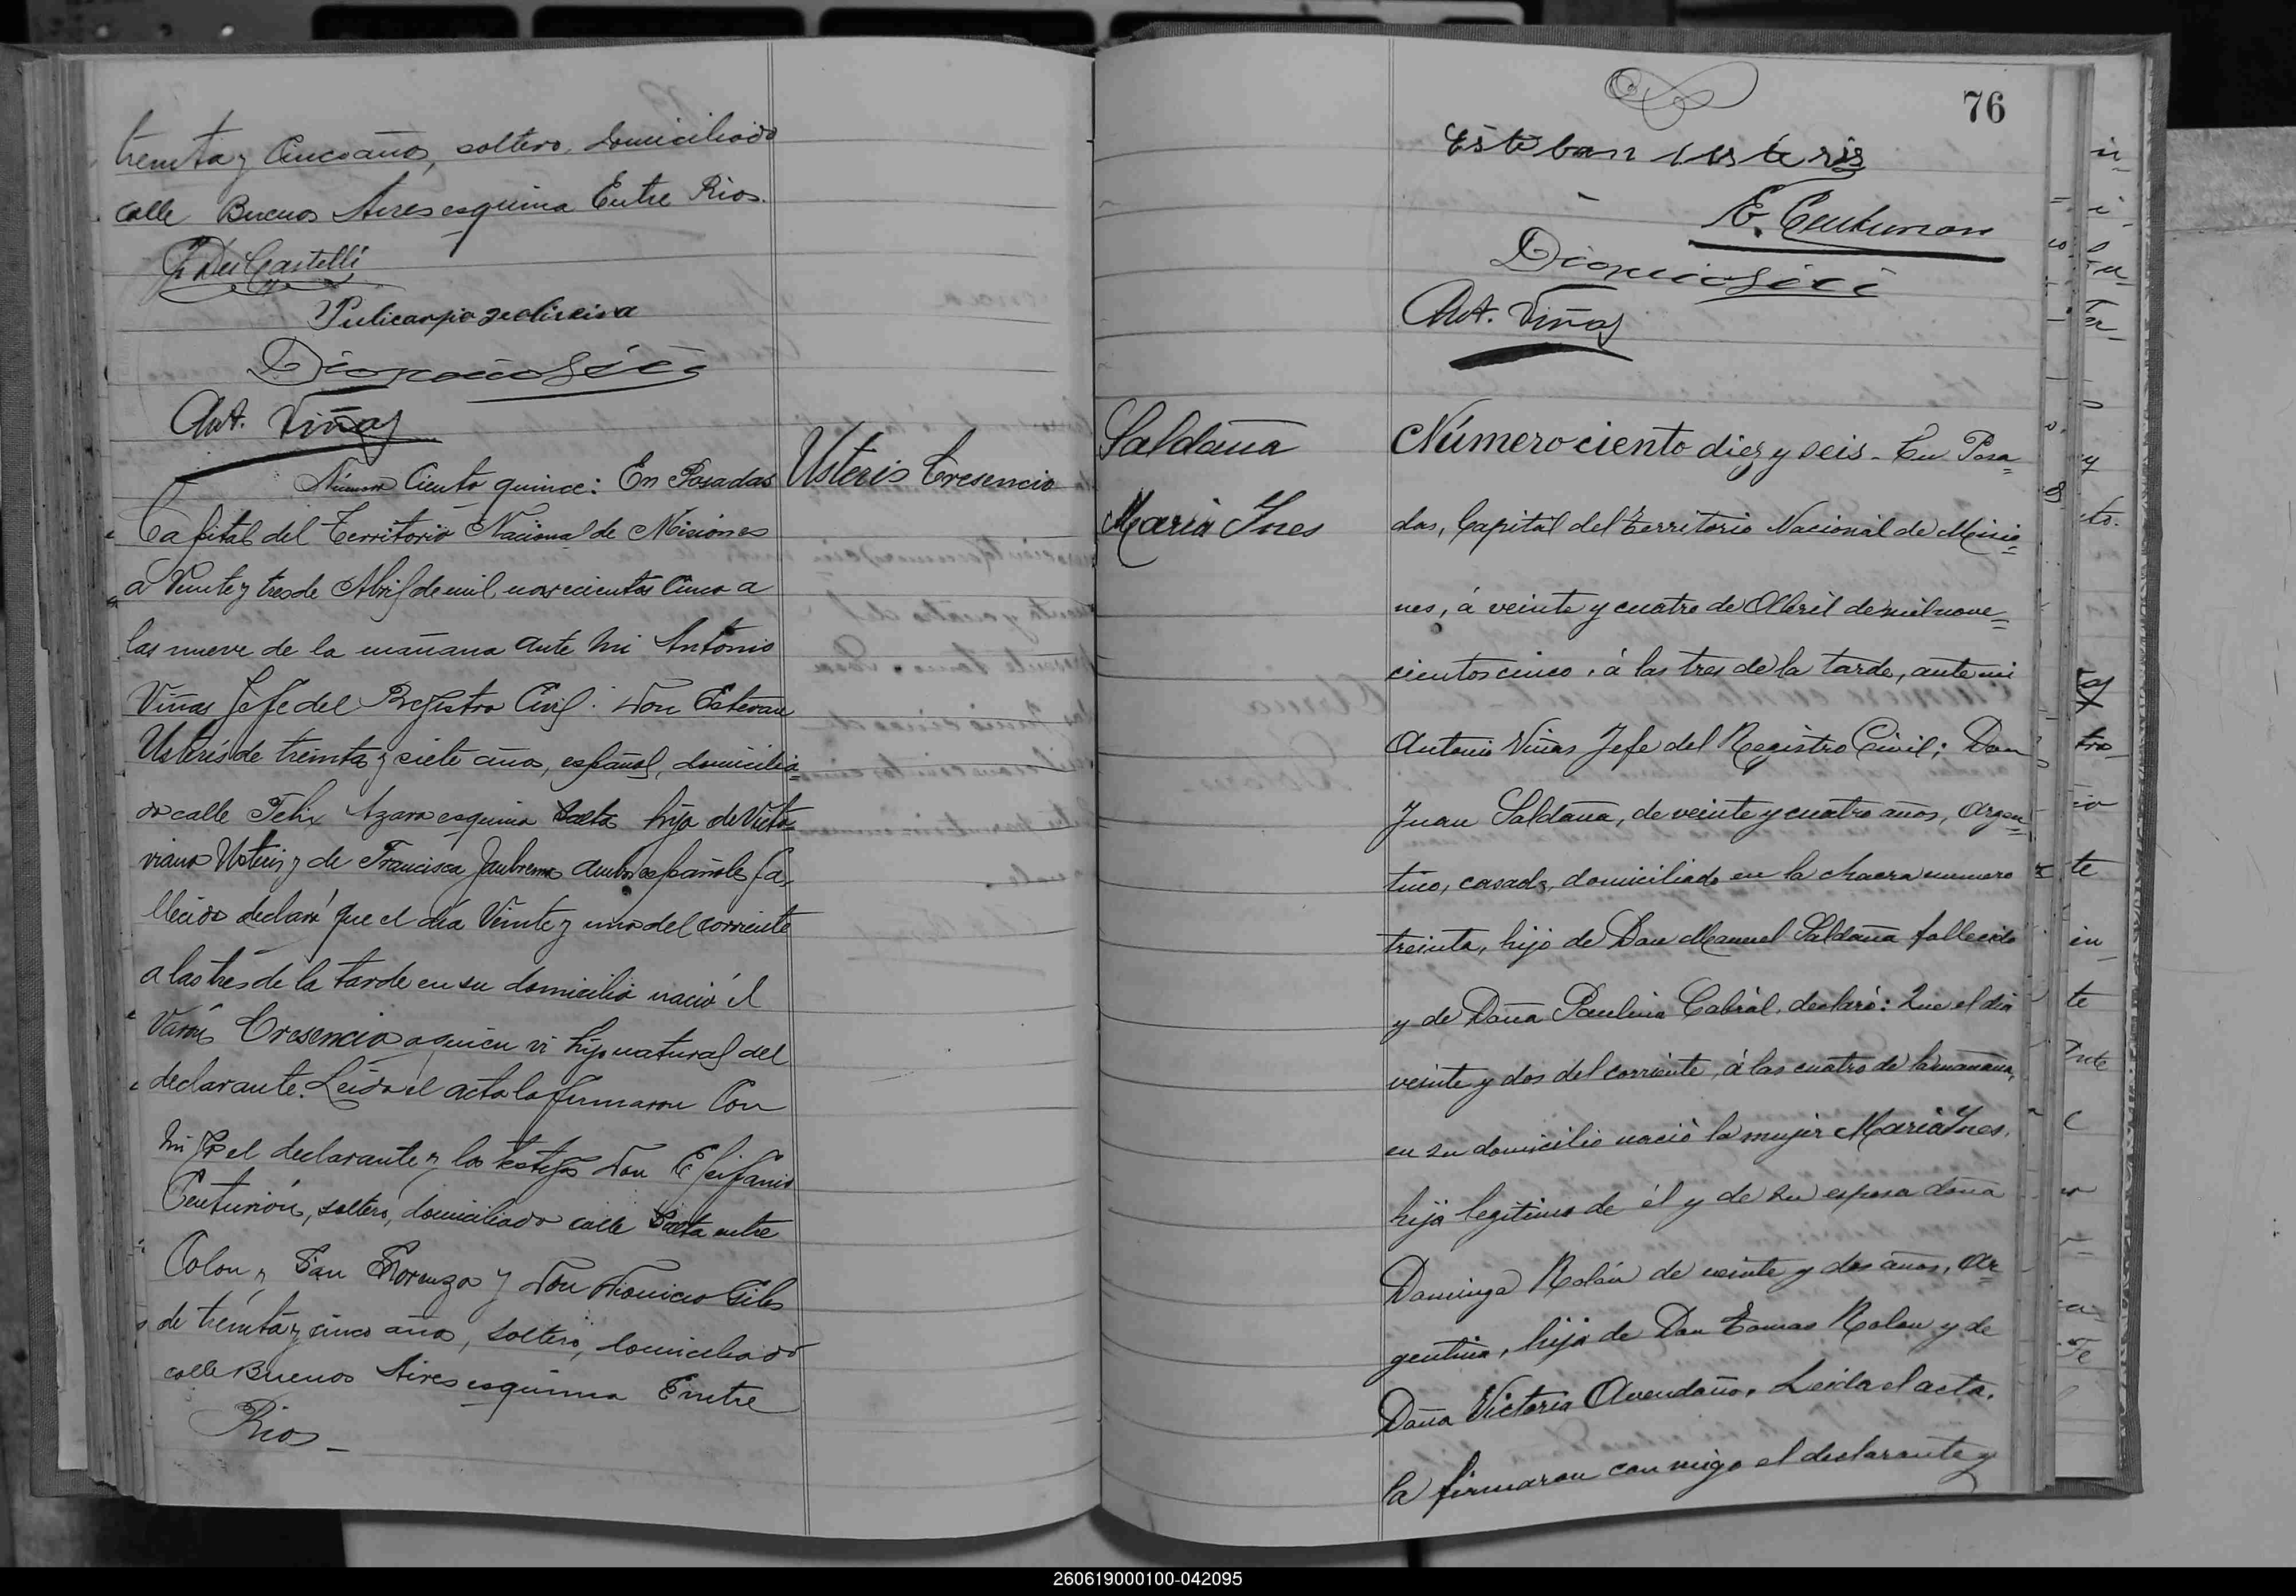 treinta y Cinco años, soltero, domiciliado
calle Buenos Aires esquina Entre Rios.
Castelli
Ant. Viñas
Número Ciento quince: En Posadas
Usteris Cresencio
Capital del Territorio Nacional de Misiones
a Veinte y tres de Abril de mil novecientos Cinco a
las nueve de la mañana ante mi Antonio
Viñas Jefe del Registro Civil: Don Estevan
Usteris de treinta y siete años, español, domicilia-
do calle Felix Azara esquina Salta hijo de Victo-
riano Usteris y de Francisca ambos españoles fa-
llecidos declaró que el día Veinte y uno del corriente
a las tres de la tarde en su domicilio nació el
Varón Cresencio a quien vi hijo natural del
declarante. Leida el acta la firmaron Con
migo el declarante y los testigos Don Epifanio
Centurión, soltero, domiciliado calle Salta entre
Colon y San Lorenzo y Don Dionicio Giles
de treinta y cinco años, soltero, domiciliado
calle Buenos Aires esquina Entre
Rios_
76
Esteban usteris
E. Centurion
Ant. Viñas
Saldaña
Maria Ynes
Número ciento diez y seis. En Posa=
das, Capital del Territorio Nacional de Misio=
nes, á veinte y cuatro de Abril de mil nove=
cientos cinco, á las tres de la tarde, ante mi
Antonio Viñas Jefe del Registro Civil; Don
Juan Saldaña, de veinte y cuatro años, Argen=
tino, casado, domiciliado en la chacra numero
treinta, hijo de Don Manuel Saldaña fallecido
y de Doña Paulina Cabral, declaró: Que el dia
veinte y dos del corriente, á las cuatro de la mañana,
en su domicilio nació la mujer Maria Ynes,
hija legitima de él y de su esposa doña
Dominga Rolón de veinte y dos años, Ar=
gentina, hija de Don Tomas Rolon y de
Doña Victoria Avendaño. Leida el acta,
la firmaron con migo el declarante y
260619000100-042095